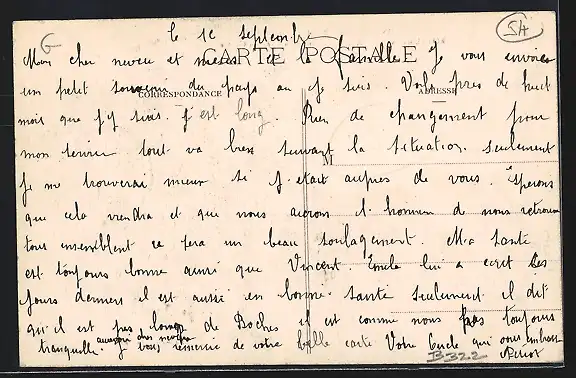 G
54
le 1c septembre
CARTE POSTALE
Mon cher neveu et nièces et la famille Je vous envoies
un petit souvenir du pays au je suis. Voila pres de huit
CORRESPONDANCE
ADRESSE
mois que j'y suis. s'est long. Rien de changement pour
mon service tout va bien suivant la situation. seulement
M
Je me trouverai mieux si j'etait aupres de vous. Esperons
que cela viendra et que nous aurons l'honneur de nous retrouver
tous ensemblent ce sera un beau soulagement. Ma santé
est toujours bonne ainsi que Vincent. Emile lui a ecrit les
jours derniers il est aussi en bonne santé seulement il dit
qu'il est pas loin de Boches il est comme nous pas toujours
tranquille. aurevoir cher neveu
Je vous remercie de votre belle carte Votre Oncle qui vous embrasse
B322